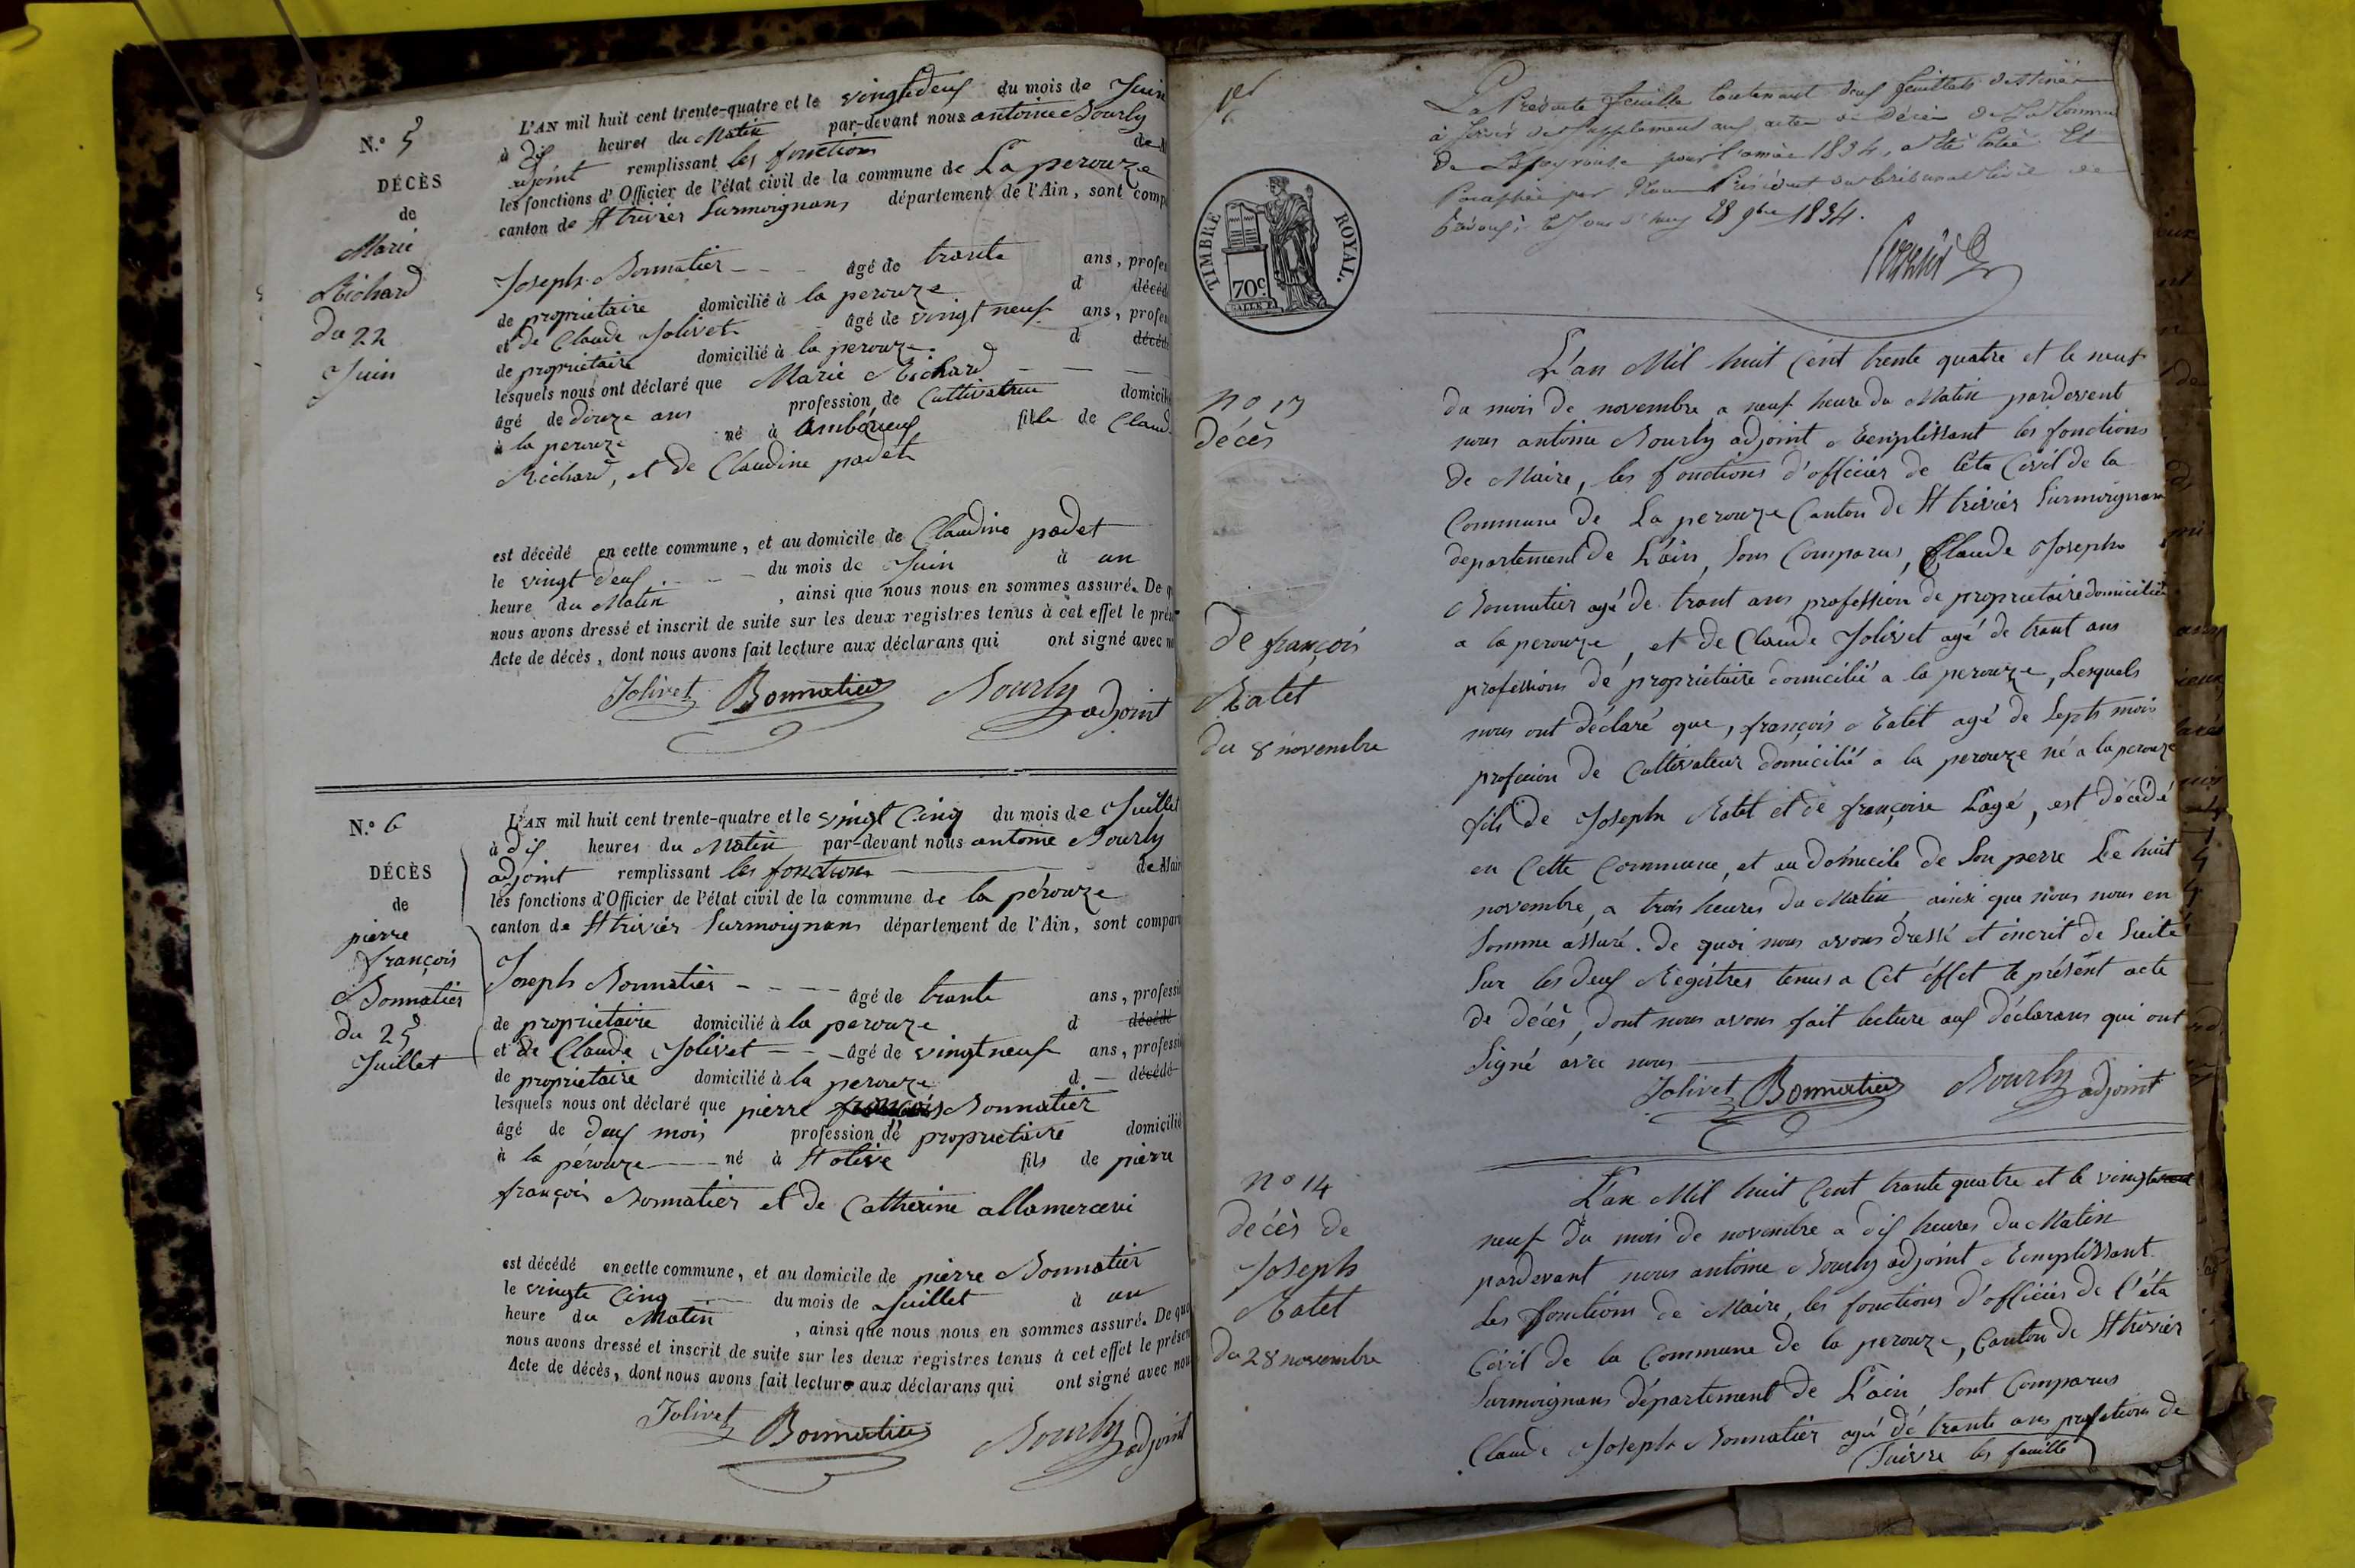 N.º 5
DÉCÈS
de
Marie
Richard
Du 22
Juin
L'AN mil huit cent trente-quatre et le vingtdeux du mois de Juin
à dix heures du Matin par-devant nous antoine Bourly
adjoint remplissant les fonctions de
les fonctions d'Officier de l'état civil de la commune de La perouze
canton de St trivier Surmoignans département de l'Ain, sont comp
Joseph Bonnatier âgé de trante ans, profes
de propriétaire domicilié à la perouze d décéd
et de Claude Jolivet âgé de vingt neuf ans, profes
de propriétaire domicilié à la perouze d décéd
lesquels nous ont déclaré que Marie Richard
âgé de douze ans profession de Cultivatrice domicil
à la perouze né à Ambérieux fille de Claud
Richard, et de Claudine padet
est décédé en cette commune, et au domicile de Claudine padet
le vingt deux du mois de Juin à un
heure du Matin, ainsi que nous nous en sommes assuré. De q
nous avons dressé et inscrit de suite sur les deux registres tenus à cet effet le prés
Acte de décès, dont nous avons fait lecture aux déclarans qui ont signé avec n
Jolivet Bonnatier Bourly adjoint
N.º 6
DÉCÈS
de
pierre
françois
Bonnatier
Du 25
Juillet
L'AN mil huit cent trente-quatre et le vingt Cinq du mois de Juillet
à dix heures du Matin par-devant nous antoine Bourly
adjoint remplissant les fonctions de Mair
les fonctions d'Officier de l'état civil de la commune de la pérouze
canton de St trivier Surmoignans département de l'Ain, sont compar
Joseph Bonnatier âgé de trante ans, professi
de propriétaire domicilié à la perouze d décédé
et de Claude Jolivet âgé de vingt neuf ans, professi
de propriétaire domicilié à la perouze d décédé
lesquels nous ont déclaré que pierre françois Bonnatier
âgé de deux mois profession de propriétaire domicilié
à la pérouze né à St olive fils de pierre
françois Bonnatier et de Catherine
est décédé en cette commune, et au domicile de pierre Bonnatier
le vingte Cinq du mois de Juillet à un
heure du Matin, ainsi que nous nous en sommes assuré. De que
nous avons dressé et inscrit de suite sur les deux registres tenus à cet effet le présen
Acte de décès, dont nous avons fait lecture aux déclarans qui ont signé avec nou
Jolivet Bonnatier Bourly adjoint
La Présente feuille Contenant deux feuillets destinée
à Servir de Supplement aux actes de Décès de la Commune
de Lapeyrouse pour l'année 1834, a été Cotée Et
Paraphée par Nous Président du tribunal Civil de
Trévoux le Jour d'huy 28 9bre 1834.
TIMBRE ROYAL.
70c
no 13
décès
De françois
Ratet
du 8 novembre
L'an Mil huit Cent trente quatre et le neuf
du mois de novembre a neuf heure du Matin pardevent
nous antoine Bourly adjoint Remplissant les fonctions
de Maire, les fonctions d'officier de léta Civil de la
Commune de La perouze Canton de St trivier Surmoignans
département de L'ain, Sons Comparus, Claude Joseph
Bonnatier agé de trant ans profession de propriétaire domicilié
a la perouze, et de Claude Jolivet agé de trant ans
professions de propriétaire domicilié a la perouze, Lesquels
nous ont déclaré que, françois Ratet agé de Septs mois
profecion de Cultivateur domicilié a la perouze né a la perouze
fils de Joseph Ratet et de françoise Lagé, est décédé
en Cette Commune, et au domicile de Son perre Le huit
novembre, a trois heures du Matin, ainsi que nous nous en
Somme assuré. De quoi nous avons dressé et incrit de Suite
Sur les deux Régistres tenus a Cet éffet le présent acte
de décès, Dont nous avons fait lecture aux déclarans qui ont
Signé avec nous
Jolivet Bonnatier Bourly adjoint
no 14
décès de
Joseph
Ratet
du 28 novembre
L'an Mil huit Cent trante quatre et le vingt
neuf du mois de novembre a dix heures du Matin
pardevant nous antoine Bourly adjoint Remplissant
Les fonctions de Maire, les fonctions d'officiés de l'éta
Civil de la Commune de la perouze, Canton de St trivier
Surmoignans département de L'ain Sont Comparus
Claude Joseph Bonnatier agé de trante ans profetions de
Suivre les feuille